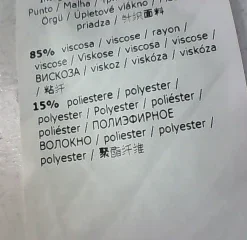 Punto / Malha /
Örgü / Úpletové vlákno /
priadza / 针织面料
85% viscosa / viscose / rayon /
viscose / Viskose / viscosa / viscose /
ВИСКОЗА / viskoz / viskóza / viskóza
/ 粘纤
15% poliestere / polyester /
polyester / Polyester / poliéster /
poliéster / ПОЛИЭФИРНОЕ
ВОЛОКНО / poliester / polyester /
polyester / 聚酯纤维